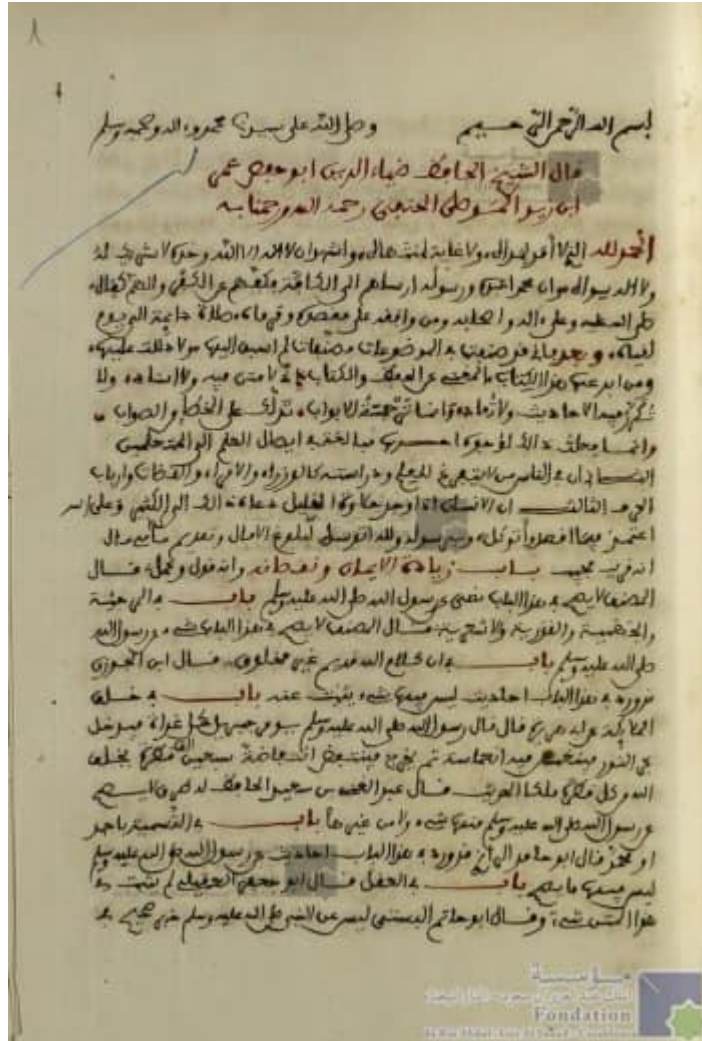 بسم الله الرحمن الرحيم وصلى الله على سيدنا محمد وءاله وصحبه وسلم
قال الشيخ الحافظ ضياء الدين ابو حفص عمر
ابن زيد الموصلي الحنفي رحمه الله ورحمنا به
الحمد لله الذي لا أمد لنواله ولا غاية لمنتهاله واشهد ان لا اله الا الله وحده لا شريك له
ولا اله سواه وان محمدا عبده ورسوله ارسله الى الكافة
صلى الله عليه وعلى ءاله واصحابه ومن وافقه على مقصده صلاة دائمة الى يوم
لقياه وبعد فاني قد صنفت في الموضوعات مصنفات لم اسبق اليها ولا دللت عليها
ومن ابدعها هذا الكتاب الحفظ والكتاب
فيه الاحاديث على الخطإ والصواب
وانما فعلت ذلك لوجوه احدها مبالغة في ايصال العلم الى المتعلمين
الثاني ان في الناس من لا يتفرغ للعلم ودراسته كالوزراء والامراء والقضاة وارباب
الحرف الثالث ان الانسان اذا وجد القليل دعاه ذلك الى الكثير وعلى الله
اعتمد فيما اقصد واتوكل وبرسوله ولله اتوسل لبلوغ الامال
انه قريب مجيب باب زيادة الايمان ونقصانه وانه قول وعمل قال
المصنف لا يصح في هذا الباب شيء عن رسول الله صلى الله عليه وسلم باب في المرجئة
والجهمية والقدرية والاشعرية قال المصنف لا يصح في هذا الباب شيء عن رسول الله
صلى الله عليه وسلم باب في ان كلام الله قديم غير مخلوق قال ابن الجوزي
قد ورد في هذا الباب احاديث ليس فيها شيء يثبت عنه باب في خلق
الملائكة عن ابي هريرة قال قال رسول الله صلى الله عليه وسلم يومر جبريل كل غداة فيدخل
بحر النور فينغمس فيه انغماسة ثم يخرج فينتفض انتفاضة سبعين الف قطرة يخلق
الله من كل قطرة ملكا الحديث قال عبد الغني بن سعيد الحافظ
عن رسول الله صلى الله عليه وسلم منها شيء ولا من غيرها باب في التسمية باحمد
او محمد قال ابو حاتم الرازي قد ورد في هذا الباب احاديث عن رسول الله صلى الله عليه وسلم
ليس فيها ما يصح باب في العقل قال ابو جعفر العقيلي لم يثبت في
هذا المتن شيء وقال ابو حاتم البستي ليس عن النبي صلى الله عليه وسلم خبر صحيح في
مؤسسة
Fondation